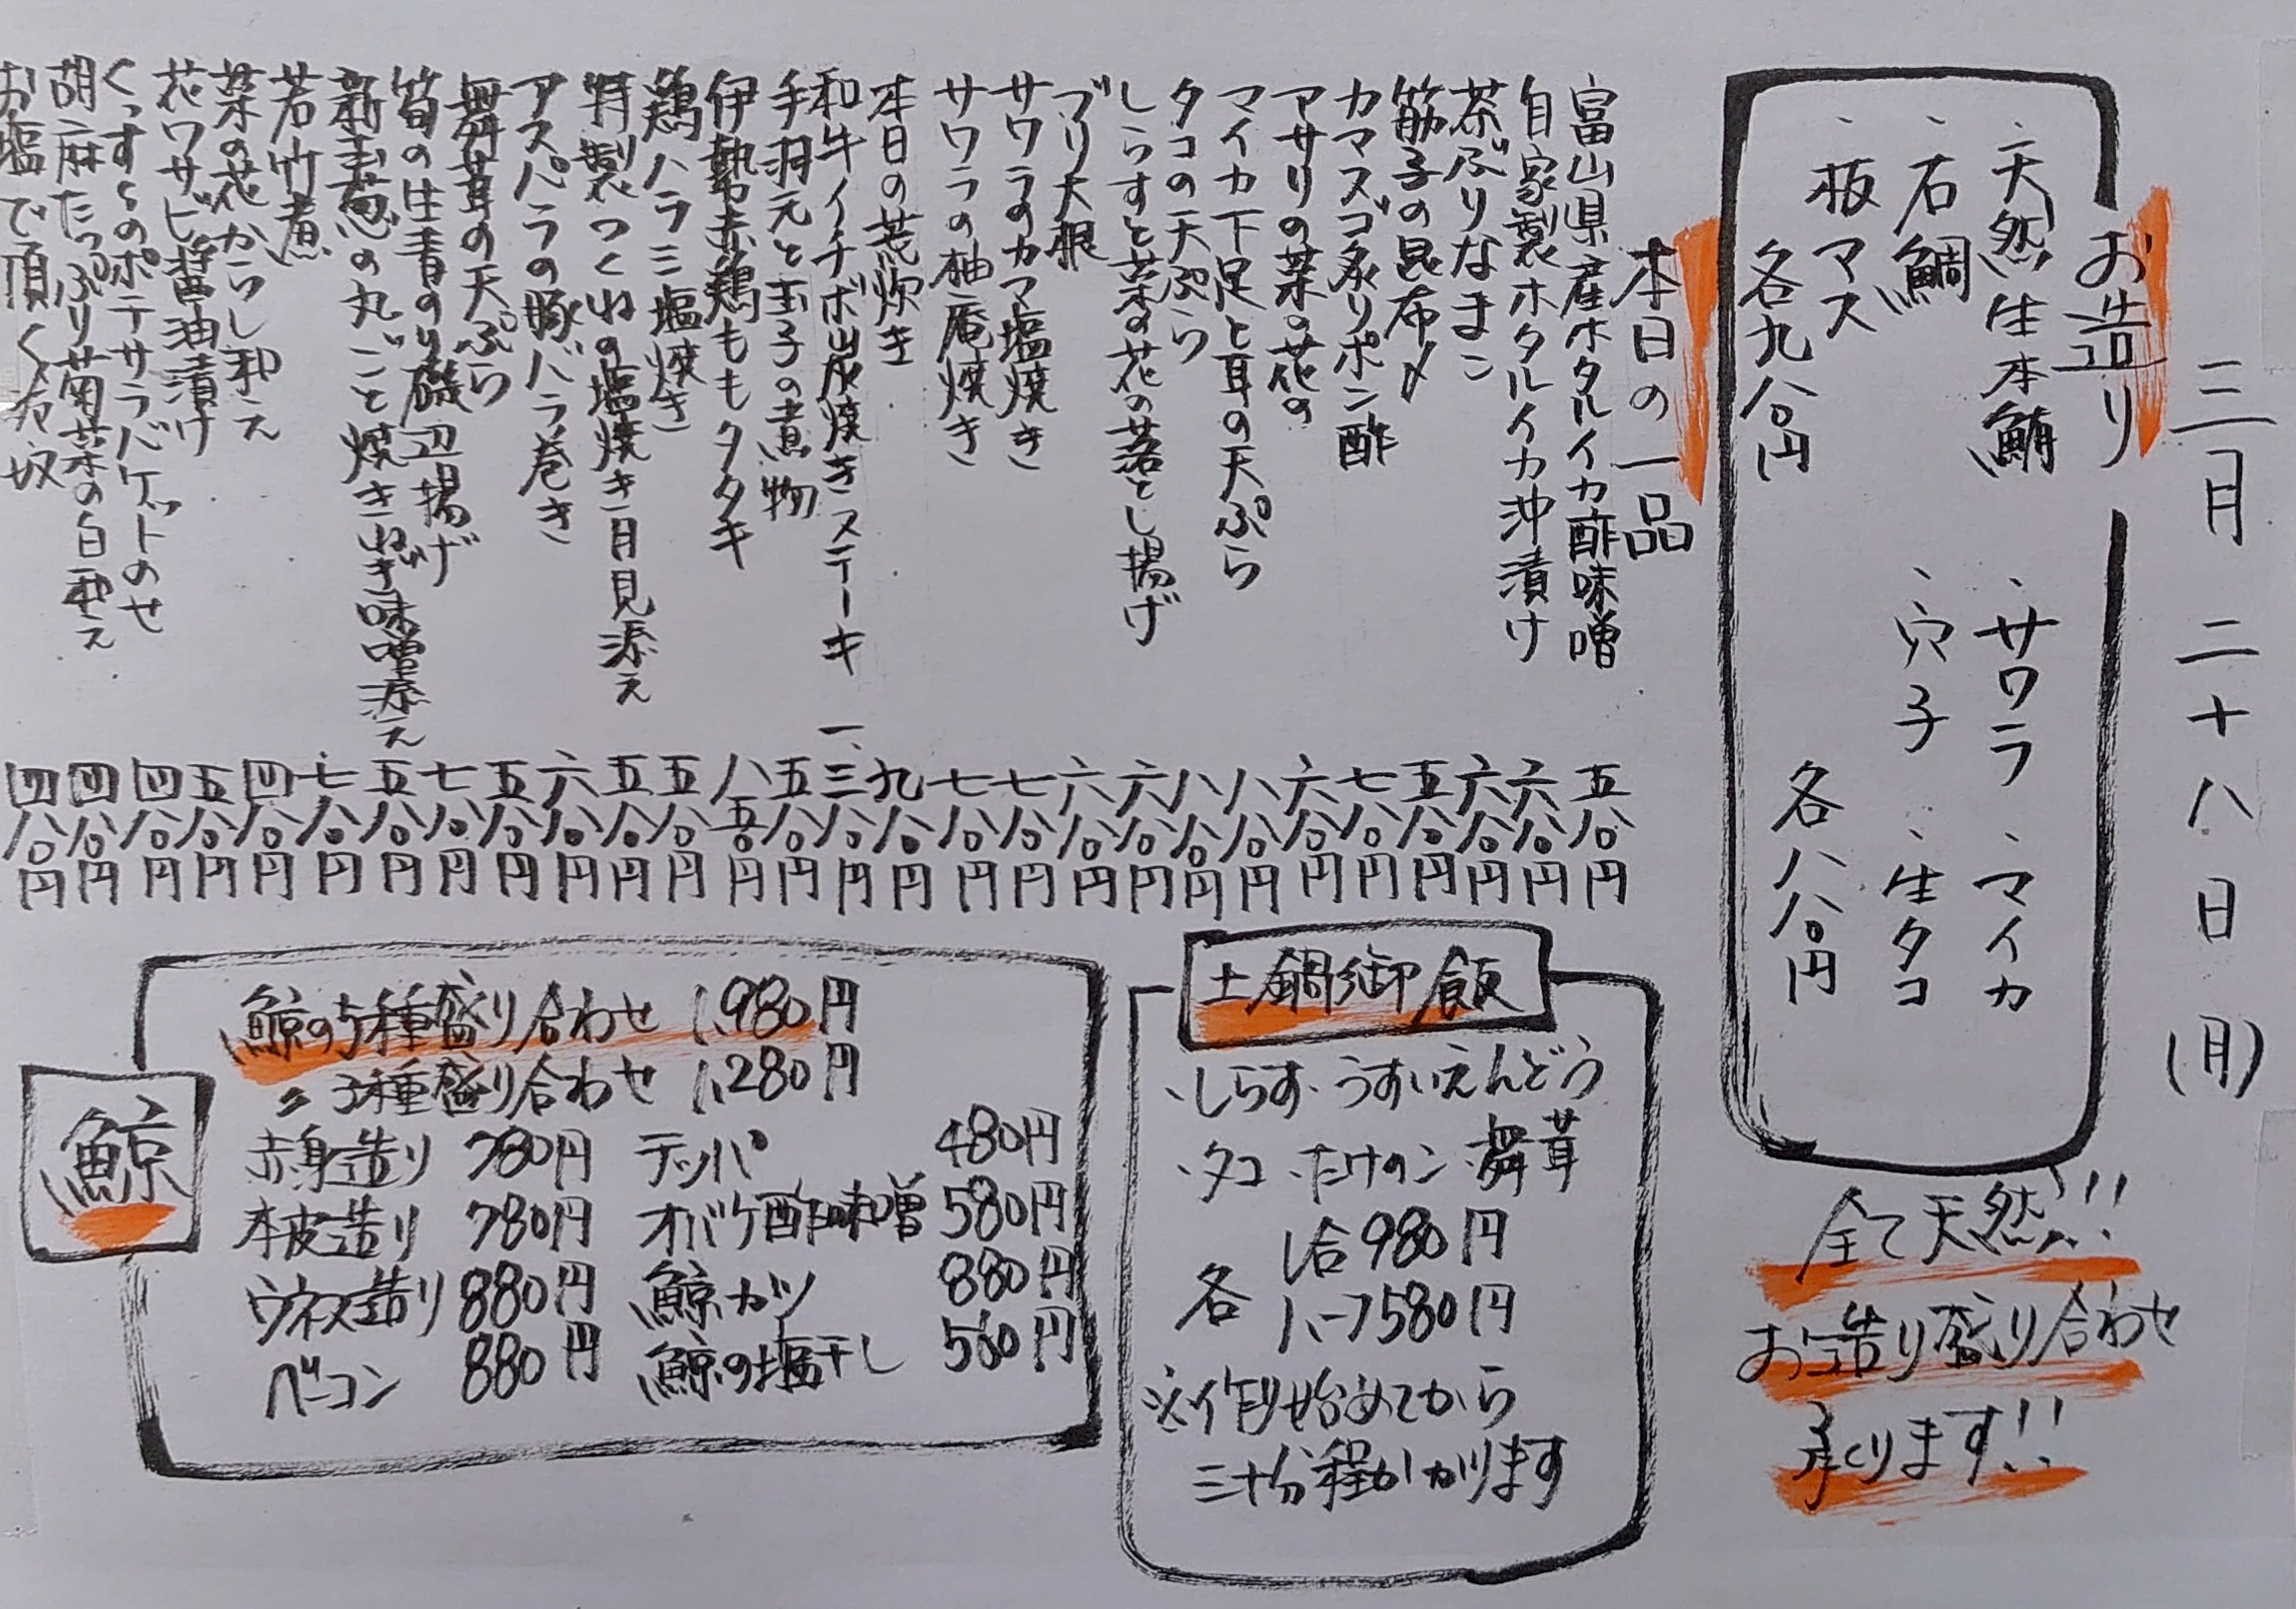 三月二十八日(月)
お造り
・天然生本鮪
・石鯛
・板マス
各九八〇円
・サワラ ・マイカ
・穴子 ・生タコ
各八八〇円
全て天然!!
お造り盛り合わせ
承ります!!
本日の一品
富山県産ホタルイカ酢味噌 五八〇円
自家製ホタルイカ沖漬け 六八〇円
茶ぶりなまこ 六八〇円
筋子の昆布〆 五八〇円
カマスゴ炙りポン酢 七八〇円
アサリの菜の花の 六八〇円
マイカ下足と耳の天ぷら 八八〇円
タコの天ぷら 八八〇円
しらすと菜の花の落とし揚げ 六八〇円
ブリ大根 六八〇円
サワラのカマ塩焼き 七八〇円
サワラの柚庵焼き 七八〇円
本日の荒炊き 九八〇円
和牛イチボ炭焼きステーキ 一、三八〇円
手羽元と玉子の煮物 五八〇円
伊勢赤鶏ももタタキ 八五〇円
鶏ハラミ塩焼き 五八〇円
特製つくねの塩焼き月見添え 五八〇円
アスパラの豚バラ巻き 六八〇円
舞茸の天ぷら 五八〇円
筍の生青のり磯辺揚げ 七八〇円
新玉葱の丸ごと焼きねぎ味噌添え 五八〇円
若竹煮 七八〇円
菜の花からし和え 四八〇円
花ワサビ醤油漬け 五八〇円
くっすくのポテサラバケットのせ 四八〇円
胡麻たっぷり菊菜の白和え 四八〇円
お塩で頂く冷奴 四八〇円
土鍋御飯
・しらす・うすいえんどう
・タコ・たけのこ・舞茸
各
1合980円
ハーフ580円
※作り始めてから
三十分程かかります
鯨
鯨の5種盛り合わせ 1,980円
〃 3種盛り合わせ 1,280円
赤身造り 780円 テッパ 480円
本皮造り 780円 オバケ酢味噌 580円
ウネス造り 880円 鯨カツ 880円
ベーコン 880円 鯨の塩干し 560円